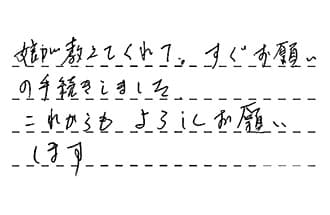 娘が教えてくれて。すぐお願い
の手続きしました
これからも よろしくお願い
します